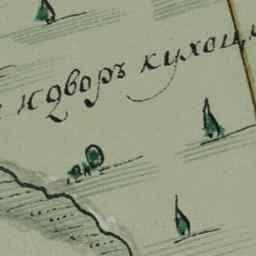 дворъ кухоц